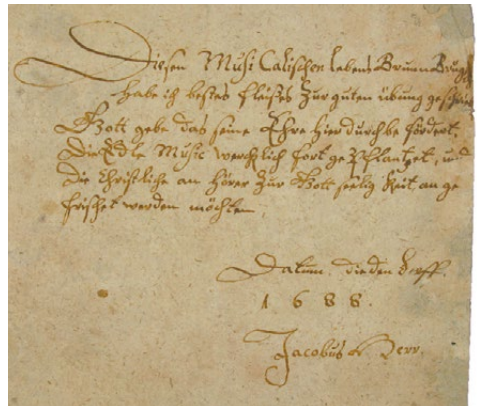 Diesen MusiCalischen lebens Brunn
habe ich bestes fleises Zur guten übung
Gott gebe das seine Ehre hierdurch be fördert,
Die Edle Music fort ge Pflantzet, und
die Christliche an hörer Zur Gott seelig Keit an ge
frischet werden möchten,
Datum
1 6 8 8 .
Jacobus